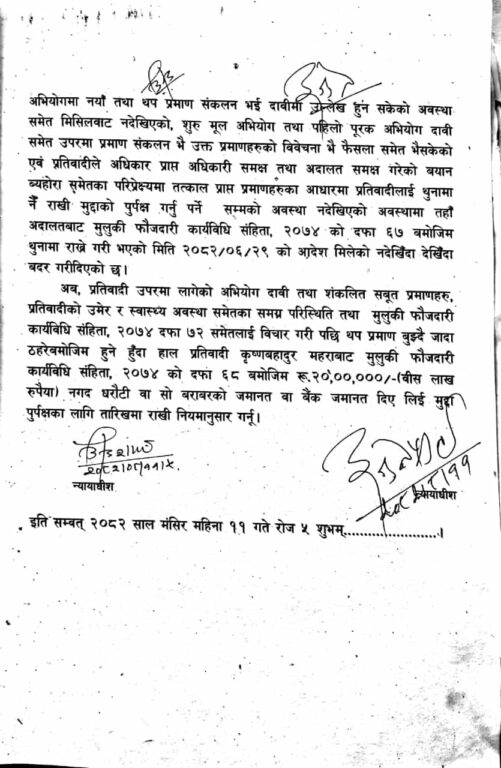 अभियोगमा नयाँ तथा थप प्रमाण संकलन भई दावीमा उल्लेख हुन सकेको अवस्था
समेत मिसिलबाट नदेखिएको, शुरु मूल अभियोग तथा पहिलो पूरक अभियोग दावी
समेत उपरमा प्रमाण संकलन भै उक्त प्रमाणहरुको विवेचना भै फैसला समेत भैसकेको
एवं प्रतिवादीले अधिकार प्राप्त अधिकारी समक्ष तथा अदालत समक्ष गरेको बयान
ब्यहोरा सुमेतका परिप्रेक्ष्यमा तत्काल प्राप्त प्रमाणहरुका आधारमा प्रतिवादीलाई थुनामा
नैं राखी मुद्दाको पुर्पक्ष गर्नु पर्ने सम्मको अवस्था नदेखिएको अवस्थामा तहाँ
अदालतबाट मुलुकी फौजदारी कार्यविधि संहिता, २०७४ को दफा ६७ बमोजिम
थुनामा राख्ने गरी भएको मिति २०८२/०६/२९ को आदेश मिलेको नदेखिँदा देखिँदा
बदर गरीदिएको छ।
अब, प्रतिवादी उपरमा लागेको अभियोग दावी तथा शंकलित सबूत प्रमाणहरु,
प्रतिवादीको उमेर र स्वास्थ्य अवस्था समेतका समग्र परिस्थिति तथा मुलुकी फौजदारी
कार्यविधि संहिता, २०७४ दफा ७२ समेतलाई विचार गरी पछि थप प्रमाण बुझ्दै जादा
ठहरेबमोजिम हुने हुँदा हाल प्रतिवादी कृष्णबहादुर महराबाट मुलुकी फौजदारी
कार्यविधि संहिता, २०७४ को दफा ६८ बमोजिम रू.२०,००,०००/-(बीस लाख
रुपैया) नगद धरौटी वा सो बराबरको जमानत वा बैंक जमानत दिए लिई मुद्दा
पुर्पक्षका लागि तारिखमा राखी नियमानुसार गर्नू।
न्यायाधीश
न्यायाधीश
इति सम्वत् २०८२ साल मंसिर महिना ११ गते रोज ५ शुभम्.......................।